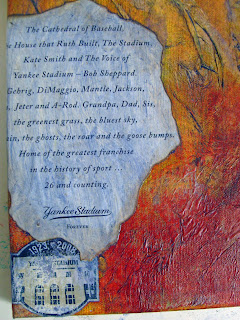 The Cathedral of Baseball,
House that Ruth Built, The Stadium,
Kate Smith and The Voice of
Yankee Stadium – Bob Sheppard.
Gehrig, DiMaggio, Mantle, Jackson,
Jeter and A-Rod. Grandpa, Dad, Sis,
the greenest grass, the bluest sky,
the ghosts, the roar and the goose bumps.
Home of the greatest franchise
in the history of sport ...
26 and counting.
Yankee Stadium
FOREVER
1923 2008
YANKEE STADIUM